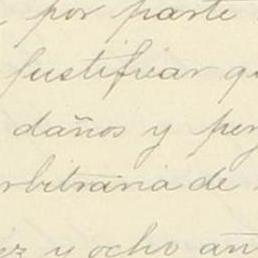 por parte
justificar q
daños y per
rbitraria de
ez y ocho añ